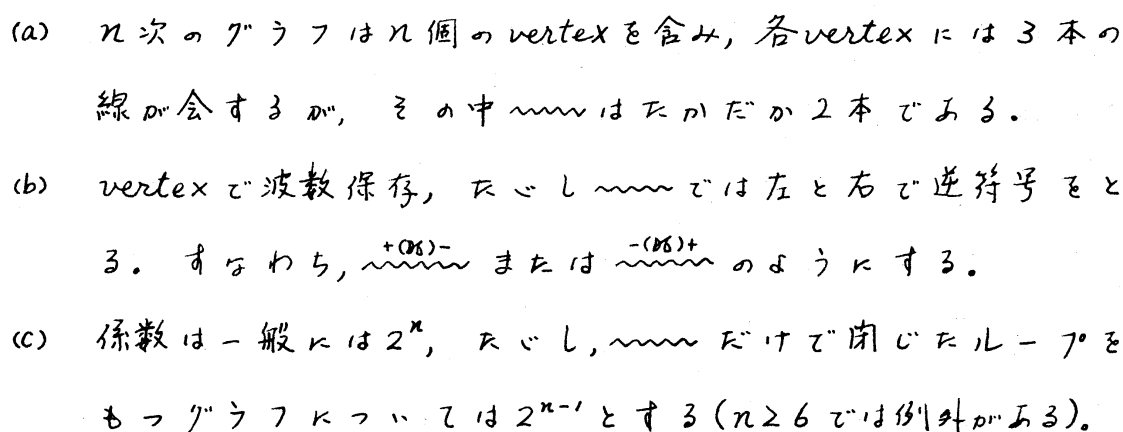 (a) n次のグラフはn個のvertexを含み, 各vertexには3本の
線が会するが, その中〰〰はたかだか2本である.
(b) vertexで波数保存, たゞし〰〰では左と右で逆符号をと
る. すなわち, +( )- 〰〰 または -( )+ 〰〰 のようにする.
(c) 係数は一般には2ⁿ, たゞし, 〰〰だけで閉じたループを
もつグラフについては2ⁿ⁻¹とする(n≥6では例外がある).